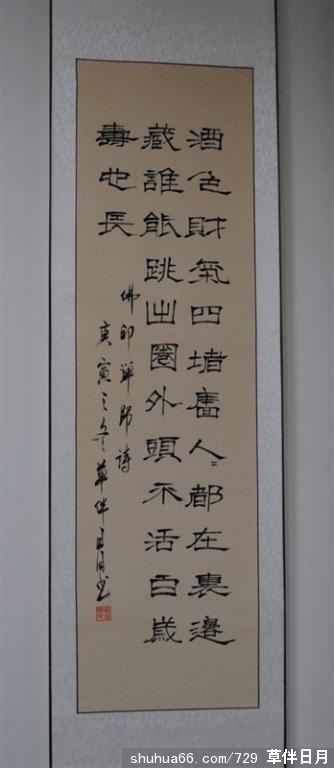 酒色財氣四堵墻人〻都在裏邊
藏誰能跳出圈外頭不活百歲
壽也長
佛印禅师詩
庚寅之冬草伴日月书
shuhua66.com/729 草伴日月